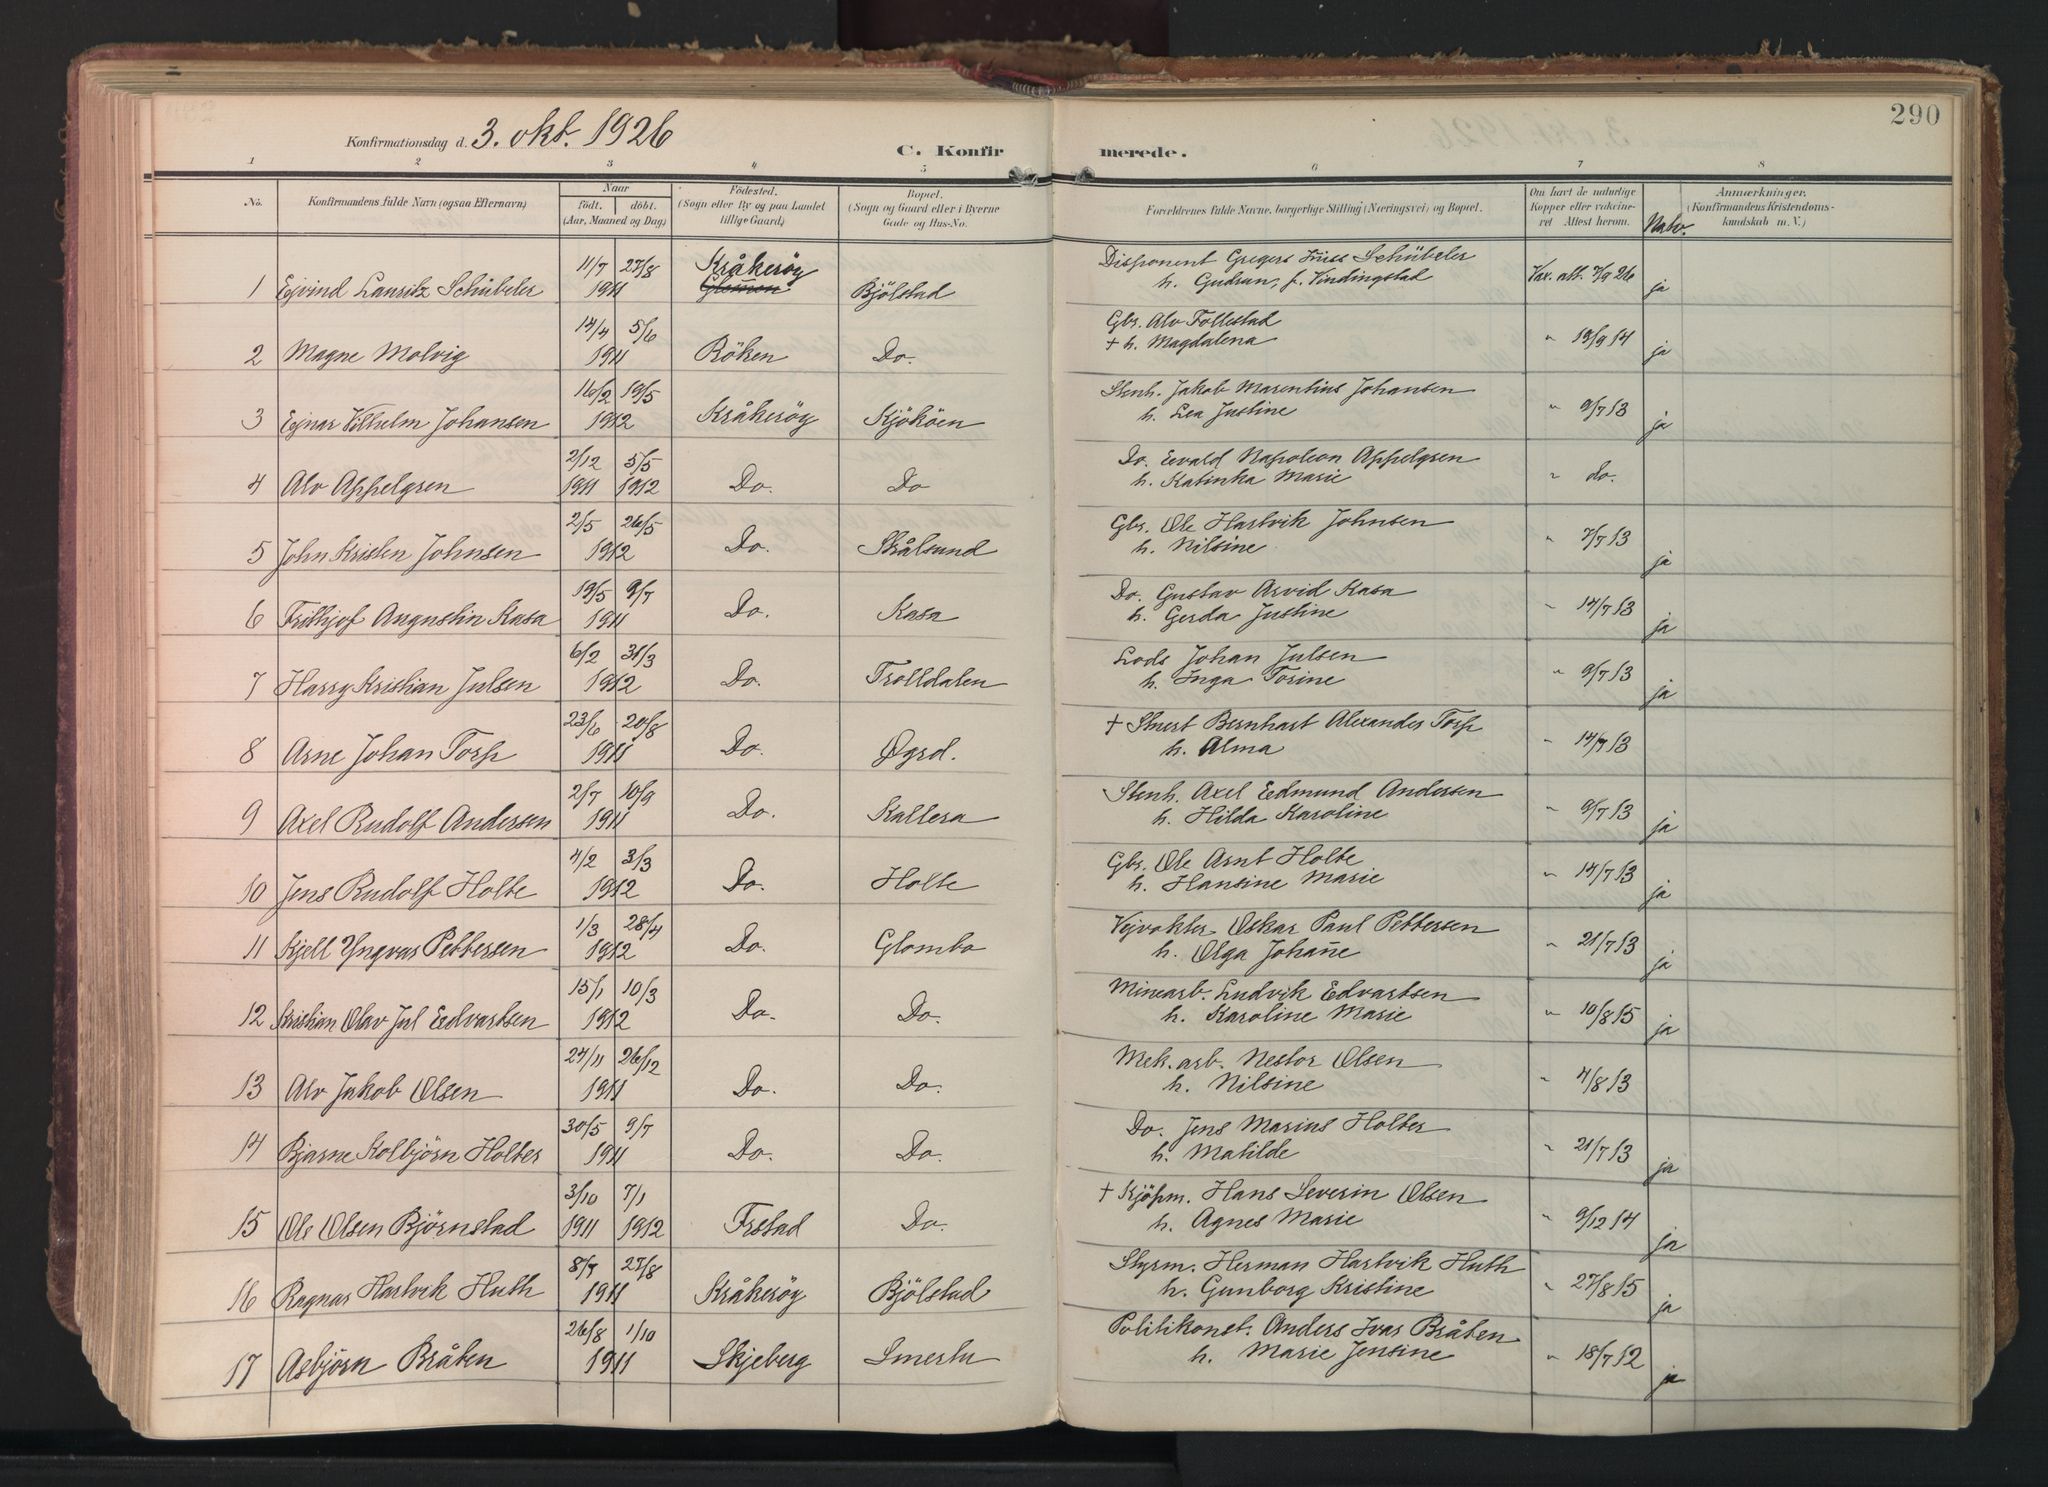 290
Konfirmationsdag d. 3. okt. 1926
C. Konfirmerede.
1 2 3 4 5 6 7 8
No. Konfirmandens fulde Navn (ogsaa Efternavn) Naar födt. döbt. (Aar, Maaned og Dag) Födested. (Sogn eller By og paa Landet tillige Gaard) Bopæl. (Sogn og Gaard eller i Byerne Gade og Hus-No. Forældrenes fulde Navne, borgerlige Stilling (Næringsvei) og Bopæl. Om havt de naturlige Kopper eller vaccineret Attest herom. Anmærkninger. (Konfirmandens Kristendomskundskab m. V.)
1 Ejvind Lauritz Schübeler 11/7 27/8 1911 Kråkeröy Glemmen Bjölstad Disponent Gregers Schübeler
h. Gudrun, f. Vindingstad Vax. att. 7/9 26 ja
2 Magne Molvig 14/4 5/6 1911 Röken Do. Gbr. Alv Follestad
+ h. Magdalena " 19/9 14 ja
3 Ejnar Vilhelm Johansen 16/2 19/5 1912 Kråkeröy Kjököen Stenh. Jakob Marentius Johansen
h. Lea Justine " 9/7 13 ja
4 Alv Appelgren 2/12 1911 5/5 1912 Do. Do Do. Evald Napoleon Appelgren
h. Katinka Marie " do.
5 John Kristen Johnsen 2/5 26/5 1912 Do. Skålsund Gbr. Ole Hartvik Johnsen
h. Nilsine " 7/7 13 ja
6 Frithjof Augustin Kasa 19/5 9/7 1911 Do. Kasa Do. Gustav Arvid Kasa
h. Gerda Justine " 14/7 13 ja
7 Harry Kristian Julsen 6/2 31/3 1912 Do. Trolldalen Lods Johan Julsen
h. Inga Torine " 9/7 13 ja
8 Arne Johan Torp 23/6 20/8 1911 Do. Øgrd. + Stuert Bernhart Alexander Torp
h. Alma " 14/7 13
9 Axel Rudolf Andersen 2/7 10/9 1911 Do. Kallera Stenh. Axel Edmund Andersen
h. Hilda Karoline " 9/7 13 ja
10 Jens Rudolf Holte 4/2 3/3 1912 Do. Holte Gbr. Ole Arnt Holte
h. Hansine Marie " 14/7 13 ja
11 Kjell Yngvar Pettersen 1/3 28/4 1912 Do. Glombo Vejvokter Oskar Paul Pettersen
h. Olga Johanne " 21/7 13 ja
12 Kristian Olav Jul Edvartsen 15/1 10/3 1912 Do. Do. Minearb. Ludvik Edvartsen
h. Karoline Marie " 10/8 15 ja
13 Alv Jakob Olsen 24/11 26/12 1911 Do. Do. Mek. arb. Nestor Olsen
h. Nilsine " 4/8 13
14 Bjarne Kolbjörn Holter 30/5 9/7 1911 Do. Do. Do. Jens Marius Holter
h. Matilde " 21/7 13 ja
15 Ole Olsen Björnstad 3/10 1911 7/1 1912 Frstad Do. + Kjöpm. Hans Severin Olsen
h. Agnes Marie " 9/12 14 ja
16 Ragnar Hartvik Huth 8/7 27/8 1911 Kråkeröy Bjölstad Styrm. Herman Hartvik Huth
h. Gunborg Kristine " 27/8 15 ja
17 Asbjörn Bråten 26/8 1/10 1911 Skjeberg Smertu Politikonst. Anders Ivar Bråten
h. Marie Jensine " 18/7 12 ja